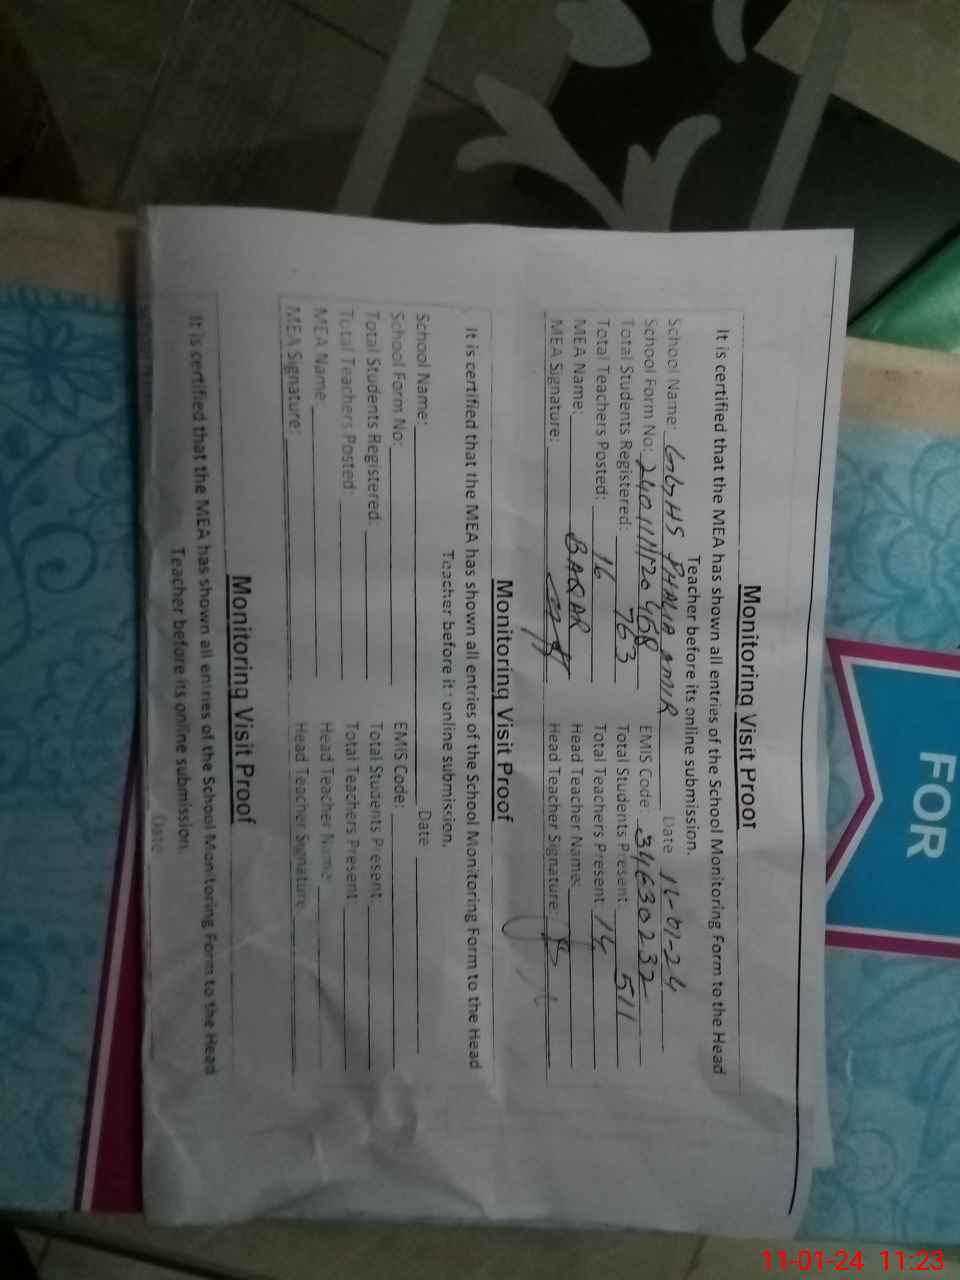 Monitoring Visit Proof
It is certified that the MEA has shown all entries of the School Monitoring Form to the Head
Teacher before its online submission.
School Name: GGHS PHALIA AMIR Date 11-01-24
School Form No: EMIS Code: 34630232
Total Students Registered: 763 Total Students Present: 511
Total Teachers Posted: 16 Total Teachers Present: 14
MEA Name: BAQAR Head Teacher Name:
MEA Signature: Head Teacher Signature:
Monitoring Visit Proof
It is certified that the MEA has shown all entries of the School Monitoring Form to the Head
Teacher before its online submission.
School Name: Date
School Form No: EMIS Code:
Total Students Registered: Total Students Present:
Total Teachers Posted: Total Teachers Present
MEA Name: Head Teacher Name:
MEA Signature: Head Teacher Signature:
Monitoring Visit Proof
It is certified that the MEA has shown all entries of the School Monitoring Form to the Head
Teacher before its online submission.
Date
FOR
11-01-24 11:23